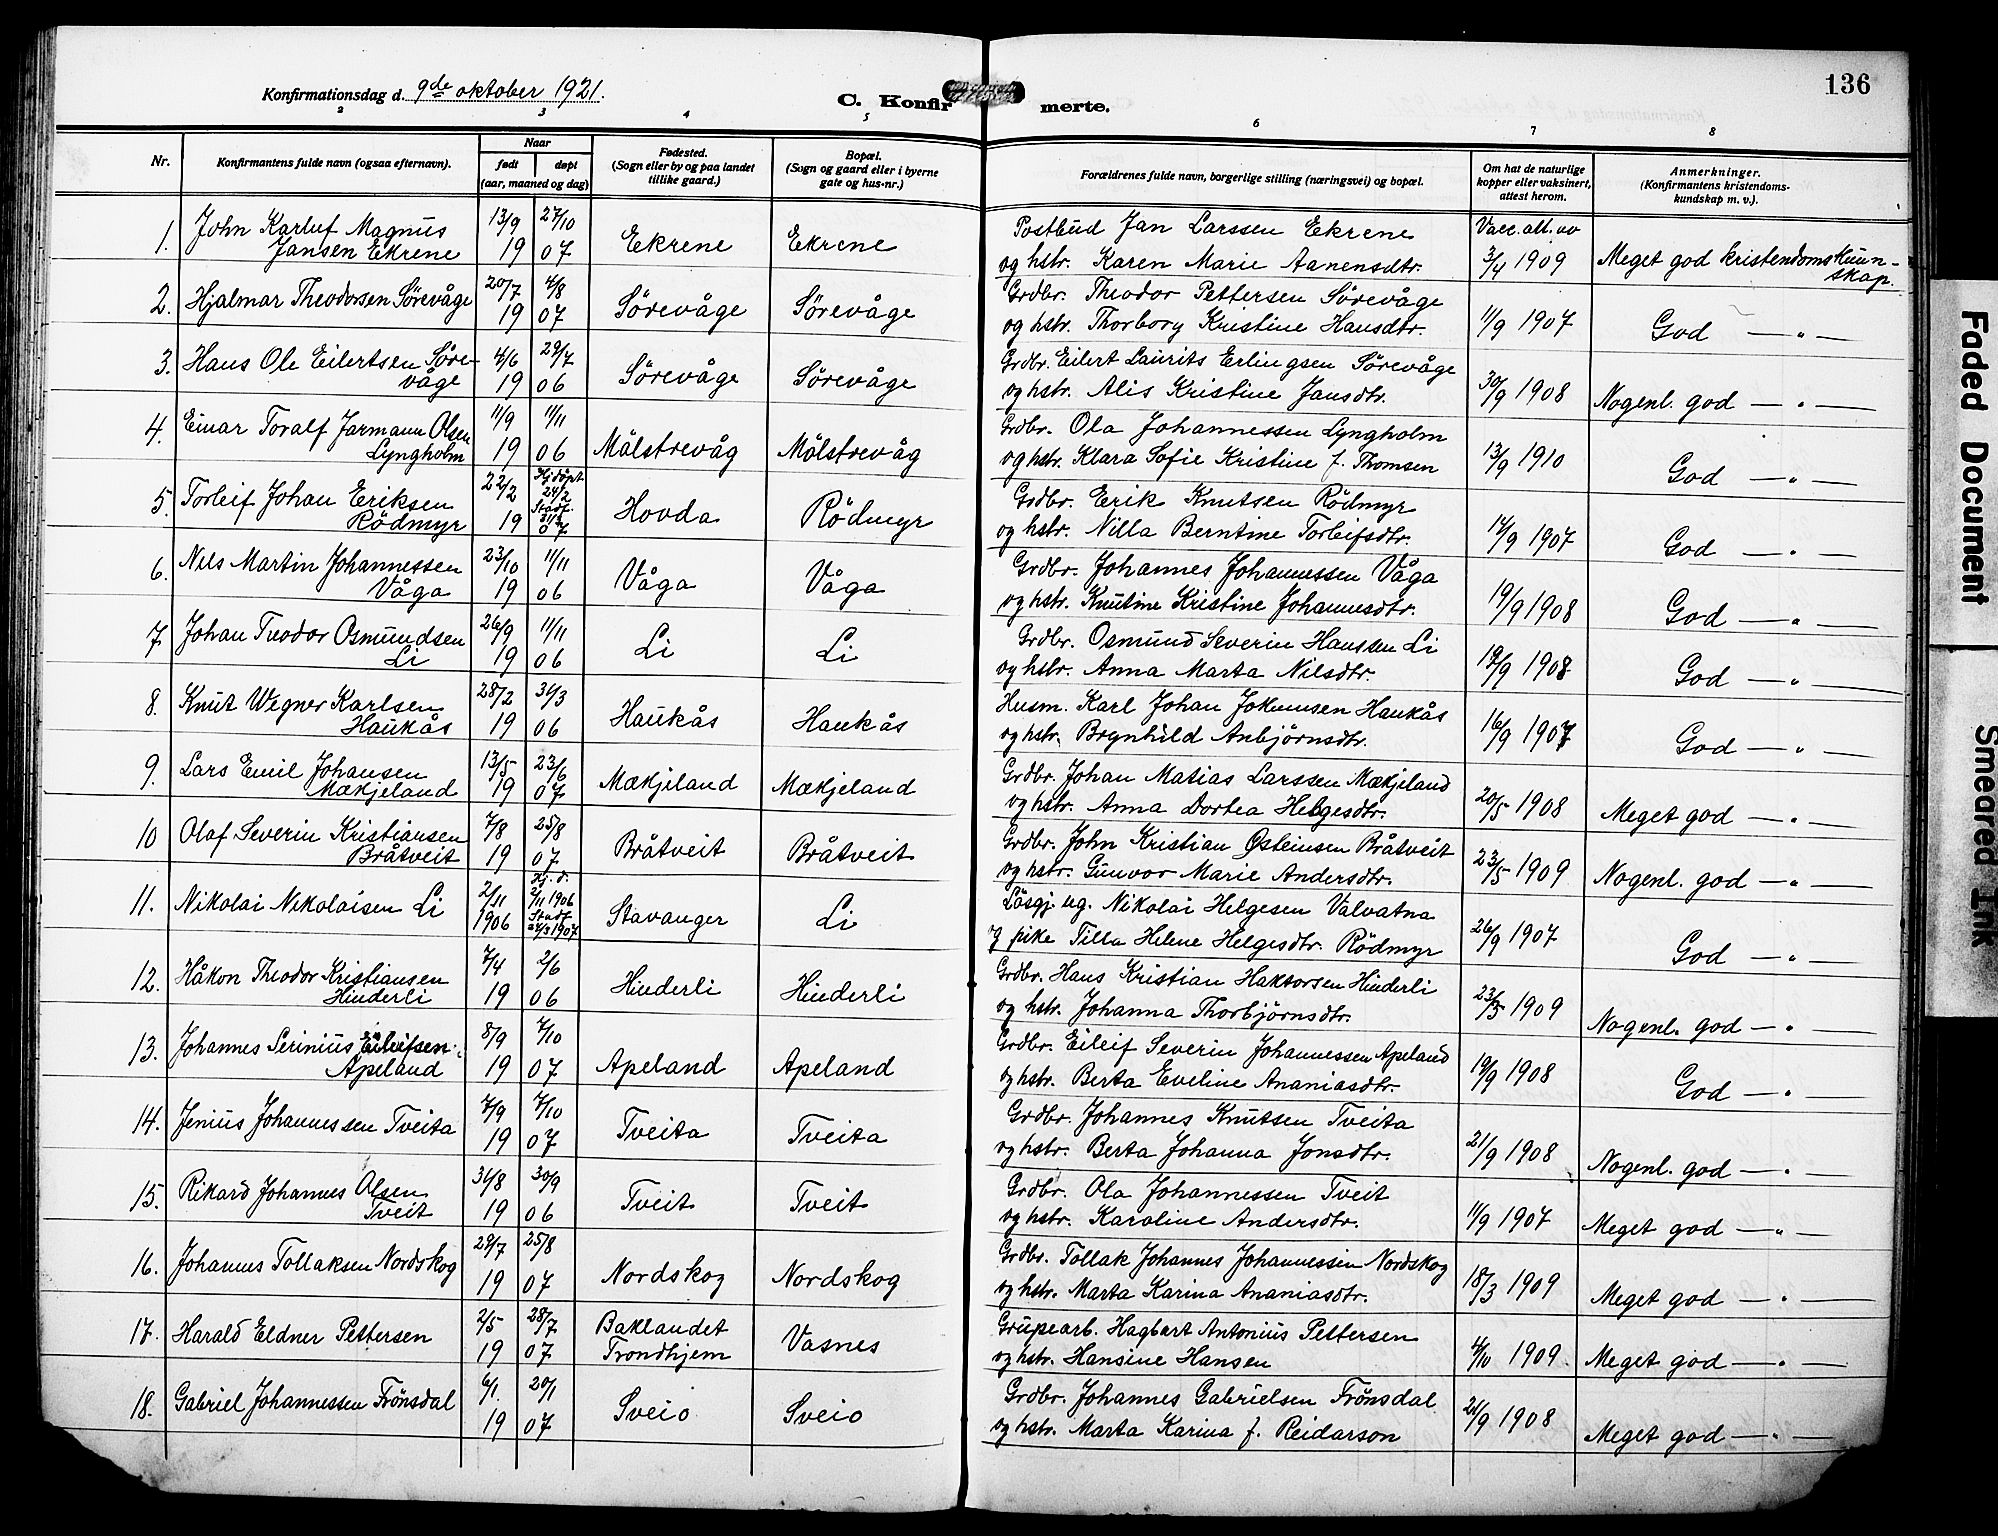 136
Konfirmationsdag d. 9de oktober 1921.
C. Konfirmerte.
2 3 4 5 6 7 8
Nr. Konfirmantens fulde navn (ogsaa efternavn). Naar født døpt (aar, maaned og dag) Fødested. (Sogn eller by og paa landet tillike gaard.) Bopæl. (Sogn og gaard eller i byerne gate og hus-nr.) Forældrenes fulde navn, borgerlige stilling (næringsvei) og bopæl. Om hat de naturlige kopper eller vaksinert, attest herom. Anmerkninger. (Konfirmantens kristendomskundskap m. v.).
1. John Karluf Magnus 13/9 27/10 Postbud Jan Larssen Ekrene Vacc. att. av
Jansen Ekrene 19 07 Ekrene Ekrene og hstr. Karen Marie Aanensdtr. 3/4 1909 Meget god kristendomskunn-
skap.
2. Hjalmar Theodorsen Sörevåge 20/7 4/8 Grdbr. Theodor Pettersen Sörevåge
19 07 Sörevåge Sörevåge og hstr. Thorborg Kristine Hansdtr. 11/9 1907 God — " —
3. Hans Ole Eilertsen Söre- 4/6 29/7 Grdbr. Eilert Laurits Erlingsen Sörevåge
våge 19 06 Sörevåge Sörevåge og hstr. Alis Kristine Jansdtr. 30/9 1908 Nogenl. god — " —
4. Einar Toralf Jarmann Olsen 11/9 11/11 Grdbr. Ola Johannessen Lyngholm
Lyngholm 19 06 Mölstrevåg Mölstrevåg og hstr. Klara Sofie Kristine f. Thomsen 13/9 1910 God — " —
5. Torleif Johan Eriksen 22/2 Hj.döpt 24/2 Stadf. Grdbr. Erik Knutsen Rödmyr
Rödmyr 19 07 Hovda Rödmyr og hstr. Nilla Berntine Torleifsdtr. 17/9 1907 God — " —
6. Nels Martin Johannessen 23/10 11/11 Grdbr. Johannes Johannessen Våga
Våga 19 06 Våga Våga og hstr. Knutine Kristine Johannesdtr. 19/9 1908 God — " —
7. Johan Teodor Osmundsen 26/9 11/11 Grdbr. Osmund Severin Hanssen Li
Li 19 06 Li Li og hstr. Anna Marta Nilsdtr. 19/9 1908 God — " —
8. Knut Wegner Karlsen 28/2 31/3 Husm. Karl Johan Jokumsen Haukås
Haukås 19 06 Haukås Haukås og hstr. Brynhild Anbjörnsdtr. 16/9 1907 God — " —
9. Lars Emil Johansen 13/5 23/6 Grdbr. Johan Matias Larssen Mækjeland
Mækjeland 19 07 Mækjeland Mækjeland og hstr. Anna Dortea Helgesdtr. 20/5 1908 Meget god — " —
10 Olaf Severin Kristiansen 7/8 25/8 Grdbr. John Kristian Østeinsen Bråtveit
Bråtveit 19 07 Bråtveit Bråtveit og hstr. Gunvor Marie Andersdtr. 23/5 1909 Nogenl. god — " —
11. Nikolai Nikolaisen Li 2/11 1906 Hj. d. 2/11 1906 Stadf. 1907 Stavanger Li Lösgj. ug. Nikolai Helgesen Valvatna
og pike Tilla Helene Helgesdtr. Rödmyr 26/9 1907 God — " —
12. Håkon Theodor Kristiansen 7/4 2/6 Grdbr. Hans Kristian Haktorsen Hinderli
Hinderli 19 06 Hinderli Hinderli og hstr. Johanna Thorbjörnsdtr. 23/5 1909 Nogenl. god — " —
13. Johannes Serinius Eileifsen 8/9 7/10 Grdbr. Eileif Severin Johannessen Apeland
Apeland 19 07 Apeland Apeland og hstr. Berta Eveline Ananiasdtr. 19/9 1908 God — " —
14. Jenius Johannessen Tveita 7/9 7/10 Grdbr. Johannes Knutsen Tveita
19 07 Tveita Tveita og hstr. Berta Johanna Jonsdtr. 21/9 1908 Nogenl. god — " —
15. Rikard Johannes Olsen 31/8 30/9 Grdbr. Ola Johannessen Tveit
Tveit 19 06 Tveit Tveit og hstr. Karoline Andersdtr. 11/9 1907 Meget god — " —
16. Johannes Tollaksen Nordskog 29/7 25/8 Grdbr. Tollak Johannes Johannessen Nordskog
19 07 Nordskog Nordskog og hstr. Marta Karina Ananiasdtr. 18/3 1909 Meget god — " —
17. Harald Eldner Pettersen 2/5 28/7 Baklandet Grupearb. Hagbart Antonius Pettersen
19 07 Trondhjem Vasnes og hstr. Hansine Hansen 4/10 1909. Meget god — " —
18. Gabriel Johannessen Frönsdal 6/1 20/1 Grdbr. Johannes Gabrielsen Frönsdal
19 07 Sveio Sveio og hstr. Marta Karina f. Reidarson 21/9 1908 Meget god — " —
Faded Document
Smeared Ink